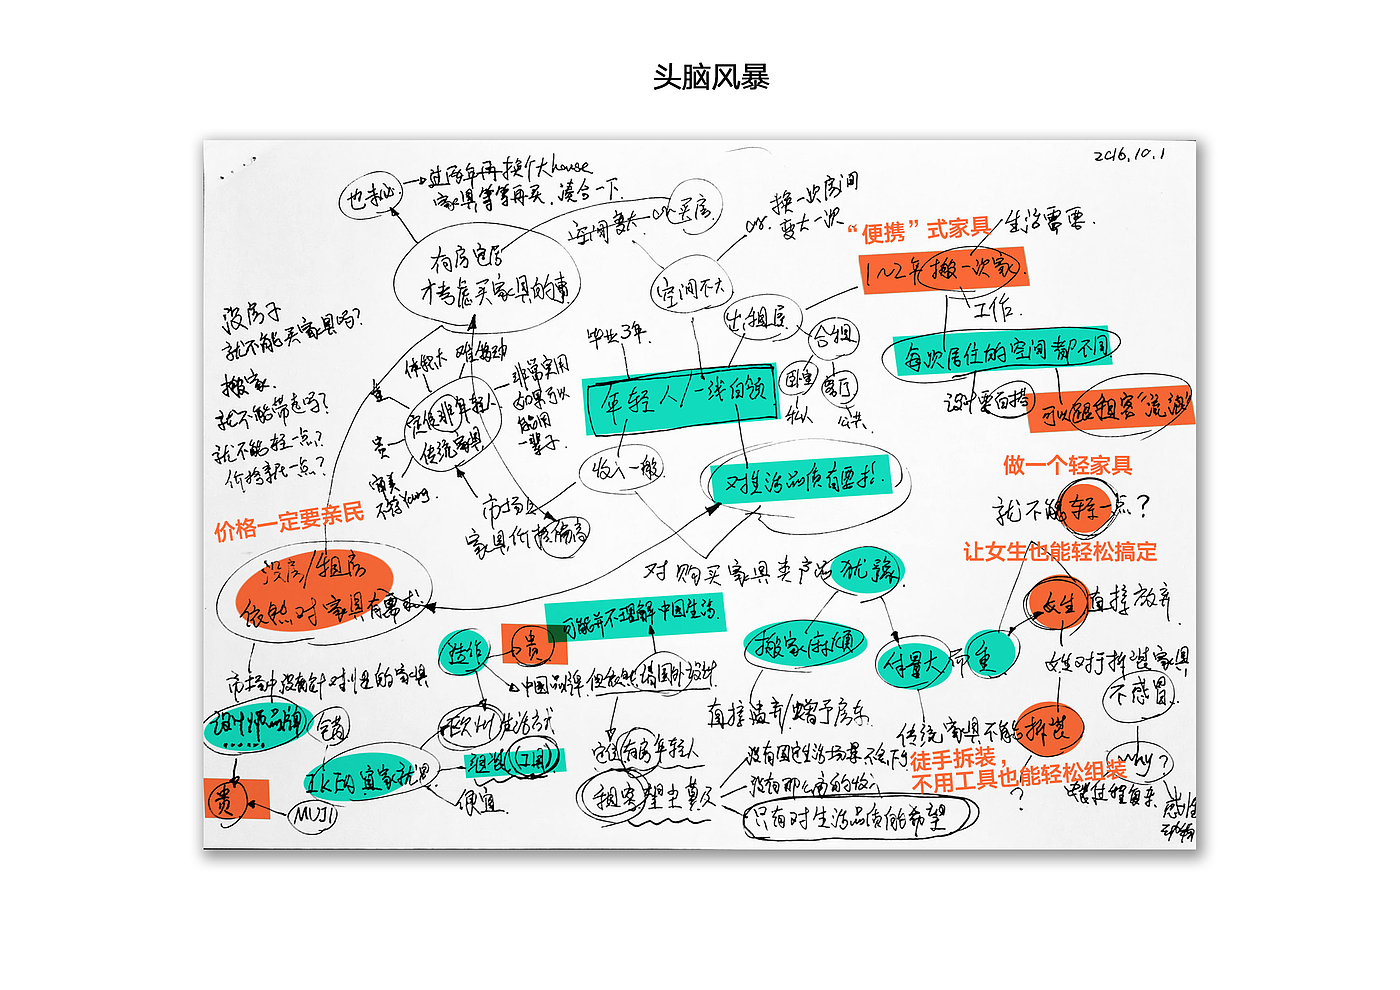 头脑风暴
2016.10.1
也未必
过两年再换个大house
家具等等再买，凑合一下
空间变大
or
买房
换一次房间
or
变大一次
“便携”式家具
生活需要
有房定居
才考虑买家具的事
空间不大
1~2年搬一次家
工作
出租屋
合租
没房子
就不能买家具吗？
搬家
就不能带走吗？
就不能轻一点？
价格亲民一点？
毕业3年
体积大
难移动
每次居住的空间都不同
卧室
客厅
私人
公共
重
贵
审美
不符young
定位非年轻人
传统家具
非常实用
如果可以
能用
一辈子
年轻人/一线白领
设计要百搭
可以跟租客“流浪”
收入一般
对生活品质有要求
做一个轻家具
就不能轻一点？
价格一定要亲民
市场上
家具价格偏高
让女生也能轻松搞定
没房/租房
依然对家具有需求
对购买家具类产品犹豫
女生
直接放弃
可能并不理解中国生活
造作
贵
中国品牌
国外设计
搬家麻烦
体量大
而重
女生对于拆装家具
不感冒
直接遗弃/赠予房东
设计师品牌
欧洲生活方式
定位有房年轻人
传统家具不能
拆装
徒手拆装，
不用工具也能轻松组装
why?
IKEA宜家就是
组装
工具
便宜
租客望尘莫及
没有那么高的收入
只有对生活品质的希望
贵
MUJI
?